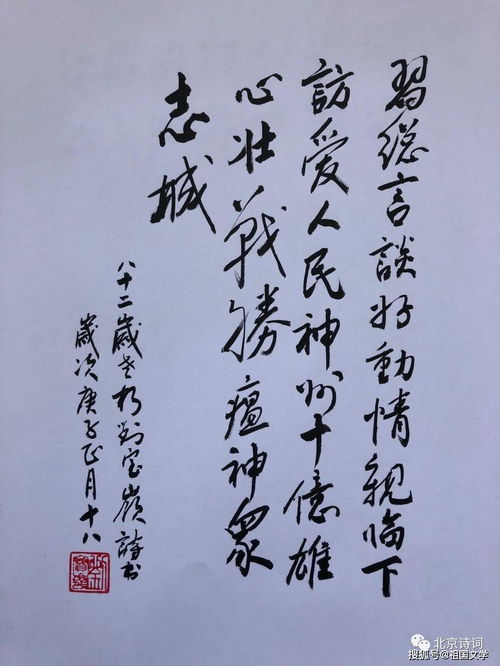 習總言談好動情親臨下
訪愛人民神州十億雄
心壯戰勝瘟神眾
志城
八十二歲老朽劉宝嶺詩书
歲次庚子正月十八
北京诗词
搜狐号@祖国文学